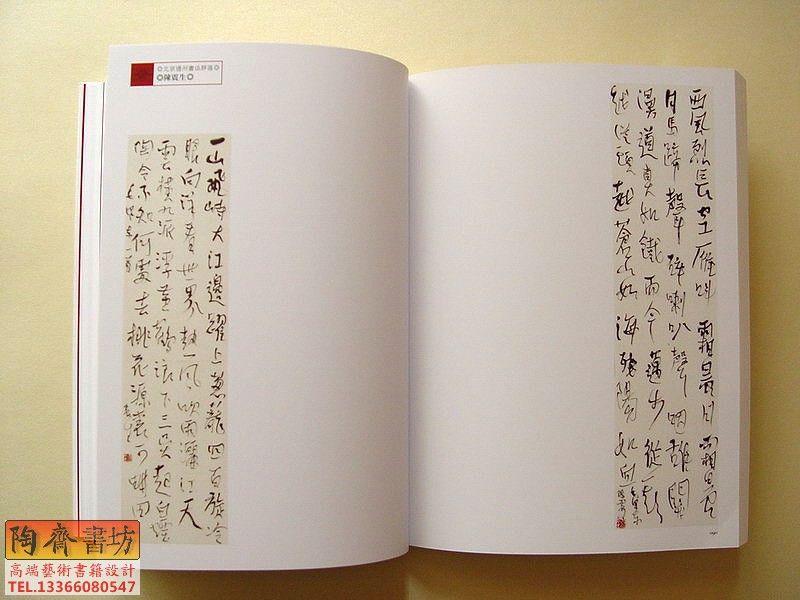 ◎北京通州書法群落◎
◎陳震生◎
一山飛峙大江邊躍上葱蘢四百旋冷
眼向洋看世界熱風吹雨灑江天
雲橫九派浮黃鶴浪下三吳起白煙
陶令不知何處去桃花源裏可耕田
西風烈長空雁叫霜晨月霜晨
月馬蹄聲碎喇叭聲咽雄關
漫道真如鐵而今邁步從頭
越從頭越蒼山如海殘陽如血
陶齋書坊
高端藝術書籍設計
TEL.13366080547